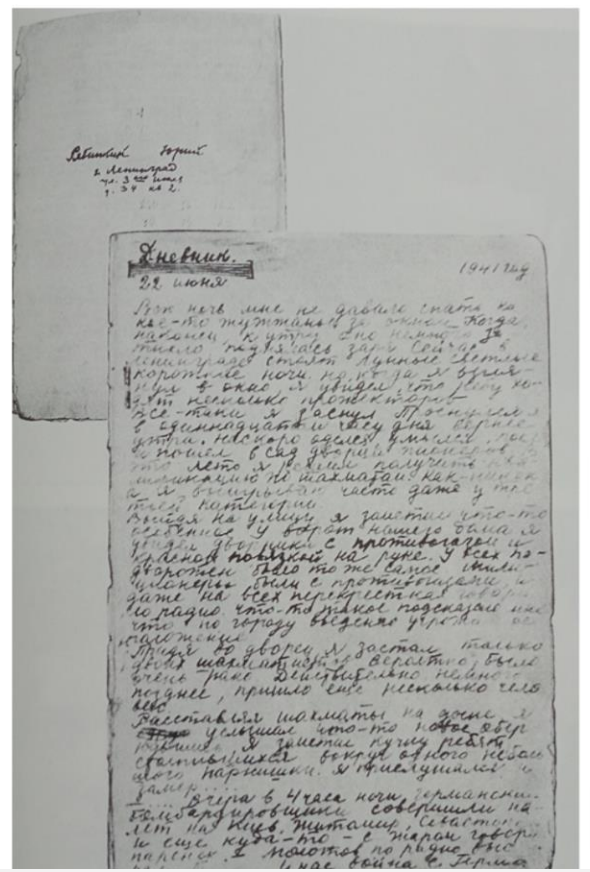 Рябинкин Юрий
г. Ленинград
ул. 3
д. 34 кв 2.
Дневник.
1941 год
22 июня
Всю ночь мне не давало спать ка
кое-то жужжанье за окном. Когда
наконец к утру оно немного за
тихло, поднялась заря. Сейчас в
Ленинграде стоят лунные, светлые
короткие ночи. но когда я взгля-
нул в окно я увидел, что небу хо-
дят несколько прожекторов
Все-таки я заснул. Проснулся я
в одиннадцатом часу дня вернее
утра. Наскоро оделся, умылся, поел
и пошел в сад дворца пионеров. В
это лето я решил получить ква-
лификацию по шахматам. как-никак
а я выигрываю часто даже у тре
тьей категории.
Выйдя на улицу я заметил что-то
особенное. У ворот нашего дома я
увидел дворника с противогазом и
красной повязкой на руке. У всех по-
дворотен было то же самое. мили-
ционеры были с противогазами, и
даже на всех перекрестках говори
ло радио. что-то такое подсказало мне
что по городу введено угрожаемое
положение
Придя во дворец, я застал только
двоих шахматистов. Вероятно, было
очень рано. Действительно немного
позднее, пришло еще несколько чело
век
Расставляя шахматы на доске я
услышал что-то новое, обер
нувшись я заметил кучку ребят,
столпившихся вокруг одного неболь
шого парнишки. Я прислушался и
замер....
.... Вчера в 4 часа ночи, германские
бомбардировщики совершили на-
лет на Киев, Житомир, Севастополь
и еще куда-то - с жаром говорил
паренек. Молотов по радио выс
У нас война с Герма